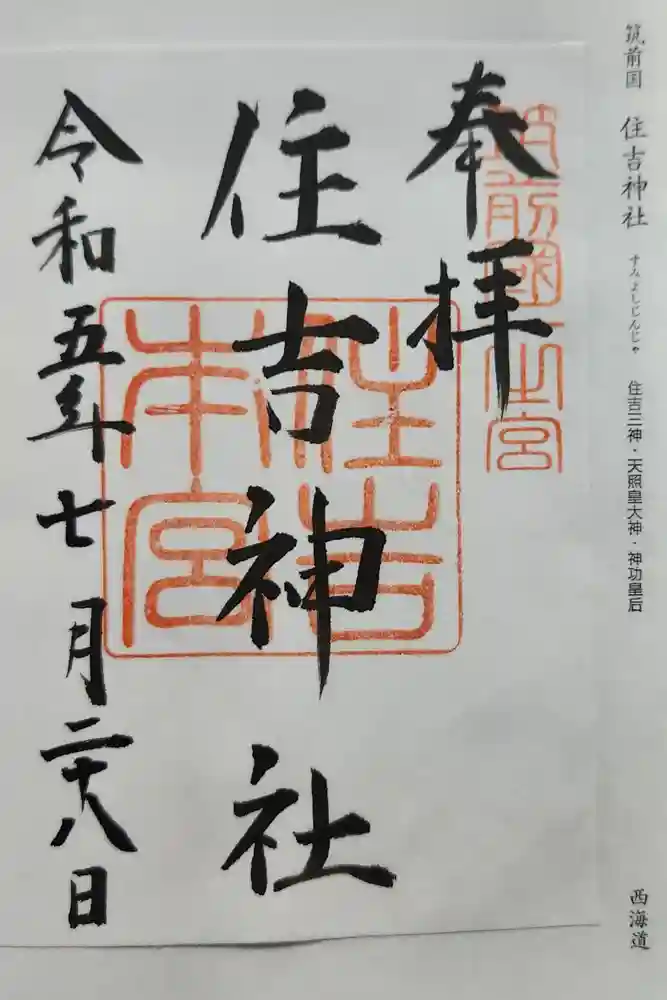 筑前国 住吉神社 すみよしじんじゃ 住吉三神・天照皇大神・神功皇后
西海道
奉拝
筑前國一之宮
住吉神社
住吉本宮
令和五年七月二十八日